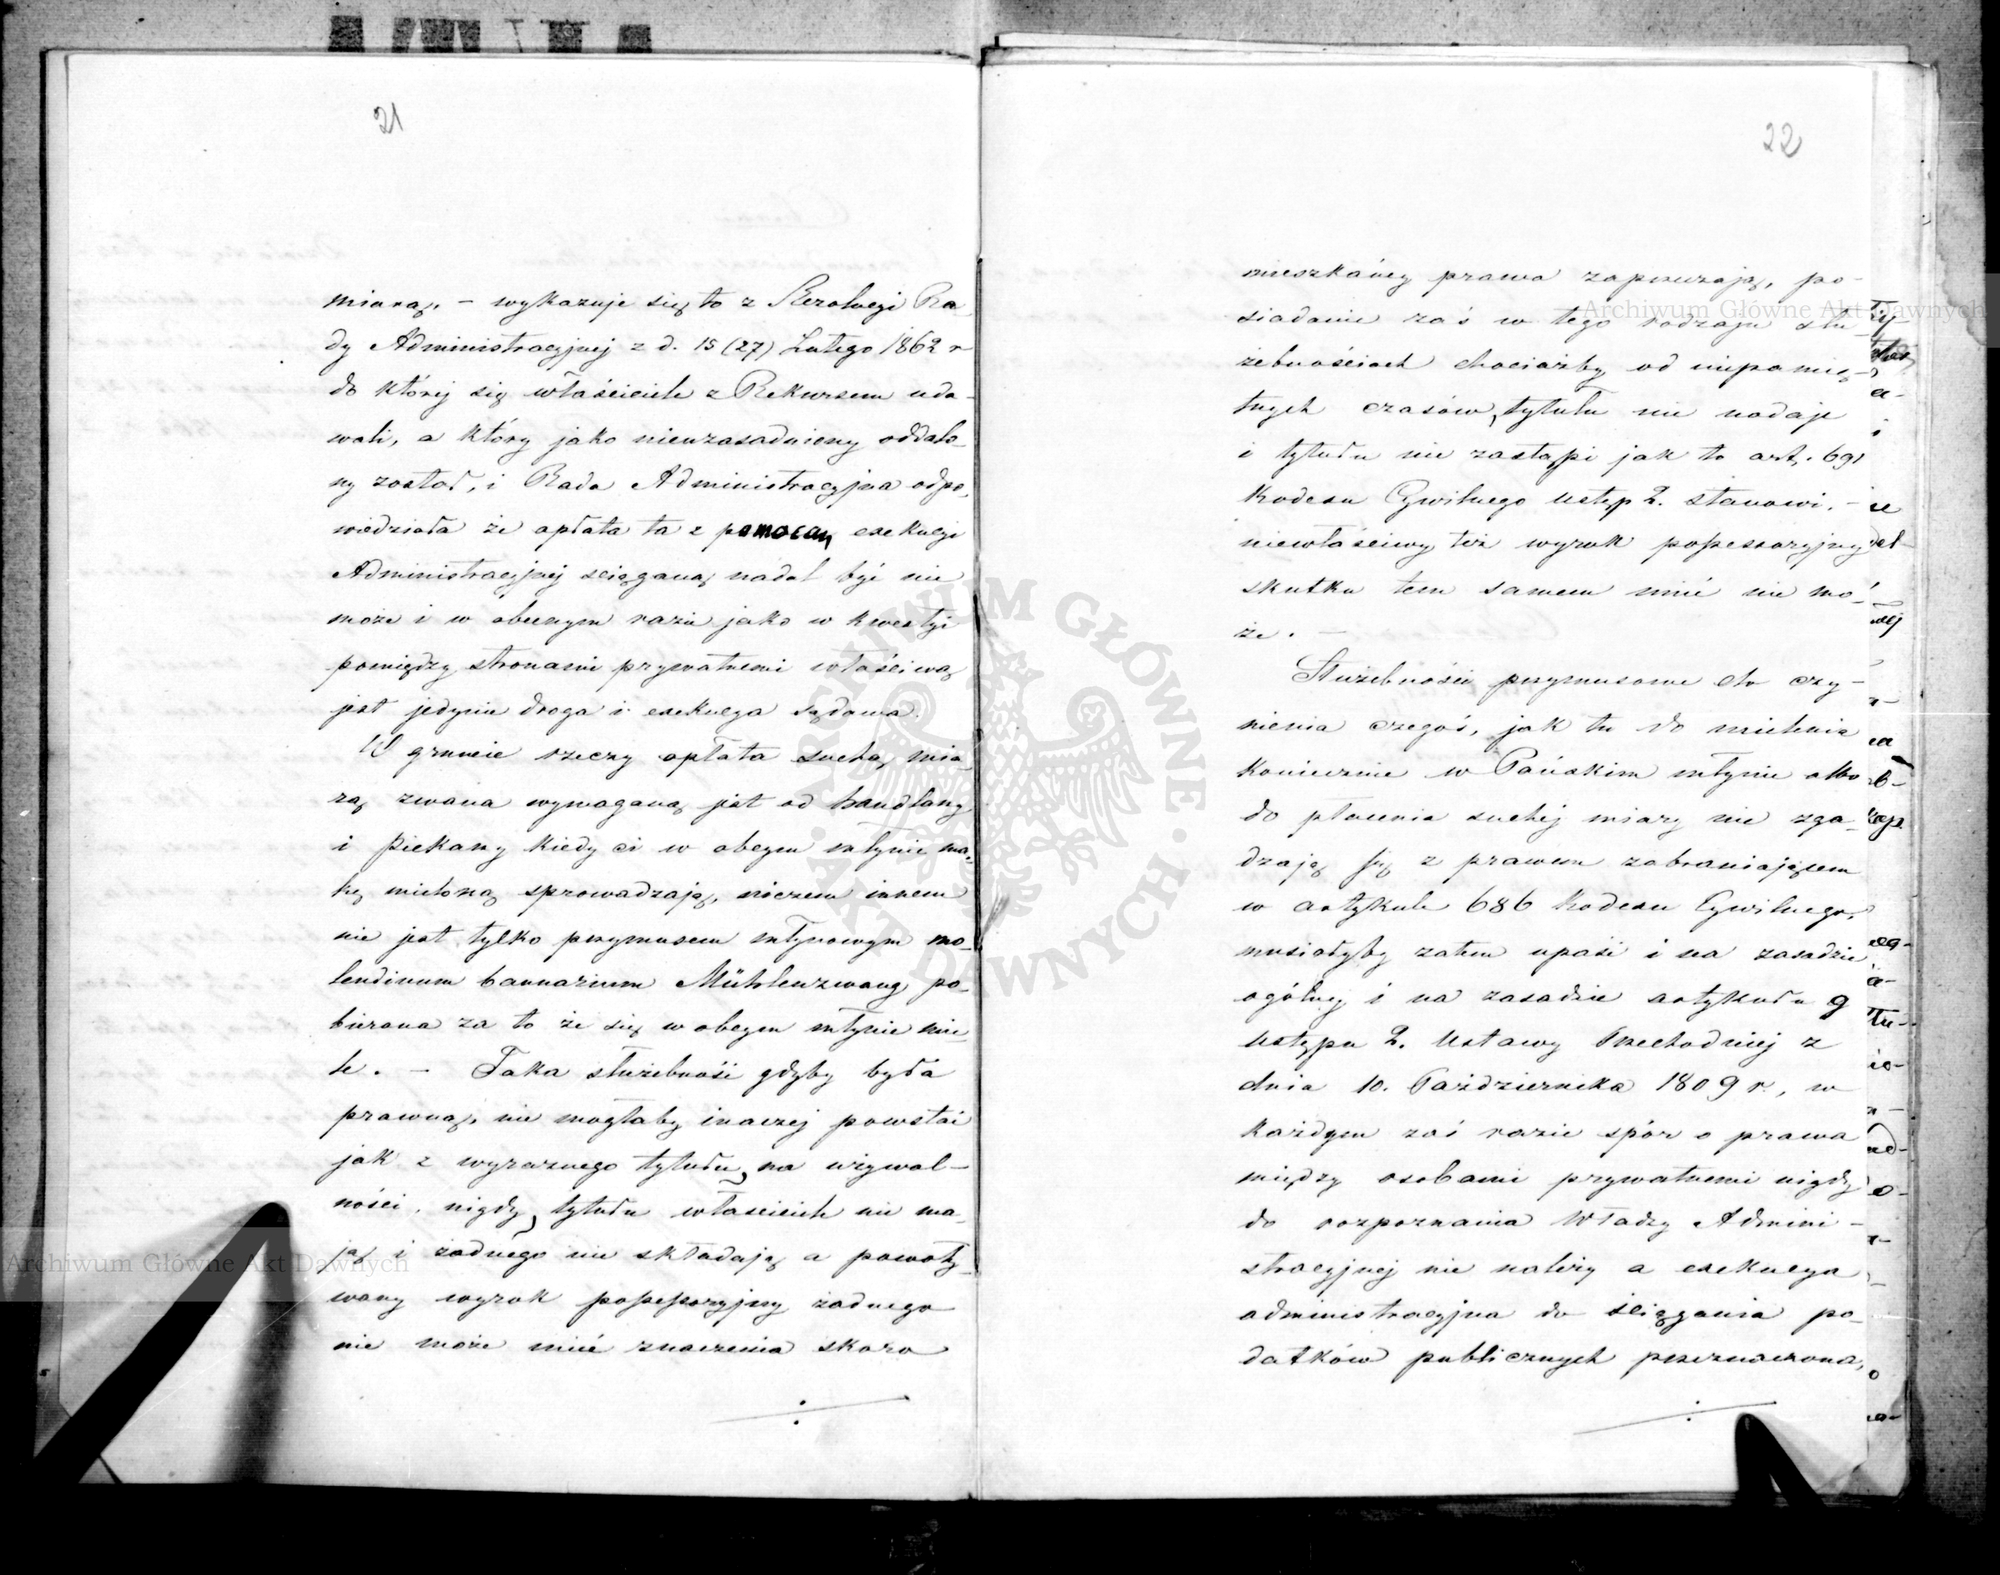 21
miarą, – wykazuje się to z Rezolucyi Ra
dy Administracyjnéj z d. 15 (27) Lutego 1862 r
do któréj się właściciele z Rekursem uda-
wali, a który jako nieuzasadniony oddalo-
ny został, i Rada Administracyjna odpo-
wiedziała że opłata ta z pomocą exekucyi
Administracyjnéj ściąganą nadal być nie
może i w obecnym razie jako w kwestyi
pomiędzy stronami prywatnemi właściwą
jest jedynie droga i exekucya sądowa.
W gruncie rzeczy opłata suchą mia-
rą zwana wymaganą jest od handlarzy
i piekarzy kiedy ci w obcym młynie mą-
kę mieloną sprowadzają, niczem innem
nie jest tylko przymusem młynowym mo-
lendinum bannarium Mühlenzwang po-
bierana za to że się w obcym młynie mie-
le. – Taka służebność gdyby była
prawną, nie mogłaby inaczéj powstać
jak z wyraznego tytułu, na używal-
ności, nigdy, tytułu właściciele nie ma-
ją i żadnego nie składają a powoły-
wany wyrok possessoryjny żadnego
nie może mieć znaczenia skoro
22
mieszkańcy prawa zaprzeczają, po-
siadanie zaś w tego rodzaju słu
żebnościach chociażby od niepamię-
tnych czasów, tytułu nie nadaje
i tytułu nie zastąpi jak to art. 691
Kodexu Cywilnego ustęp 2. stanowi. –
niewłaściwy też wyrok possessoryjny
skutku tem samem mieć nie mo-
że. –
Służebności przymusowe do czy-
nienia czegoś, jak tu do mielenia
koniecznie w Pańskim młynie albo
do płacenia suchéj miary nie zga-
dzają się z prawem zabraniającem
w artykule 686 kodexu Cywilnego,
musiałyby zatem upaść i na zasadzie
ogólnéj i na zasadzie artykułu 9
Ustępu 2. Ustawy Przechodniéj z
dnia 10. Października 1809 r., w
każdym zaś razie spór o prawa
między osobami prywatnemi nigdy
do rozpoznania Władzy Admini-
stracyjnéj nie należy a exekucya
administracyjna do ściągania po-
datków publicznych przeznaczona,
Archiwum Główne Akt Dawnych
Archiwum Główne Akt Dawnych
ARCHIWUM GŁÓWNE AKT DAWNYCH